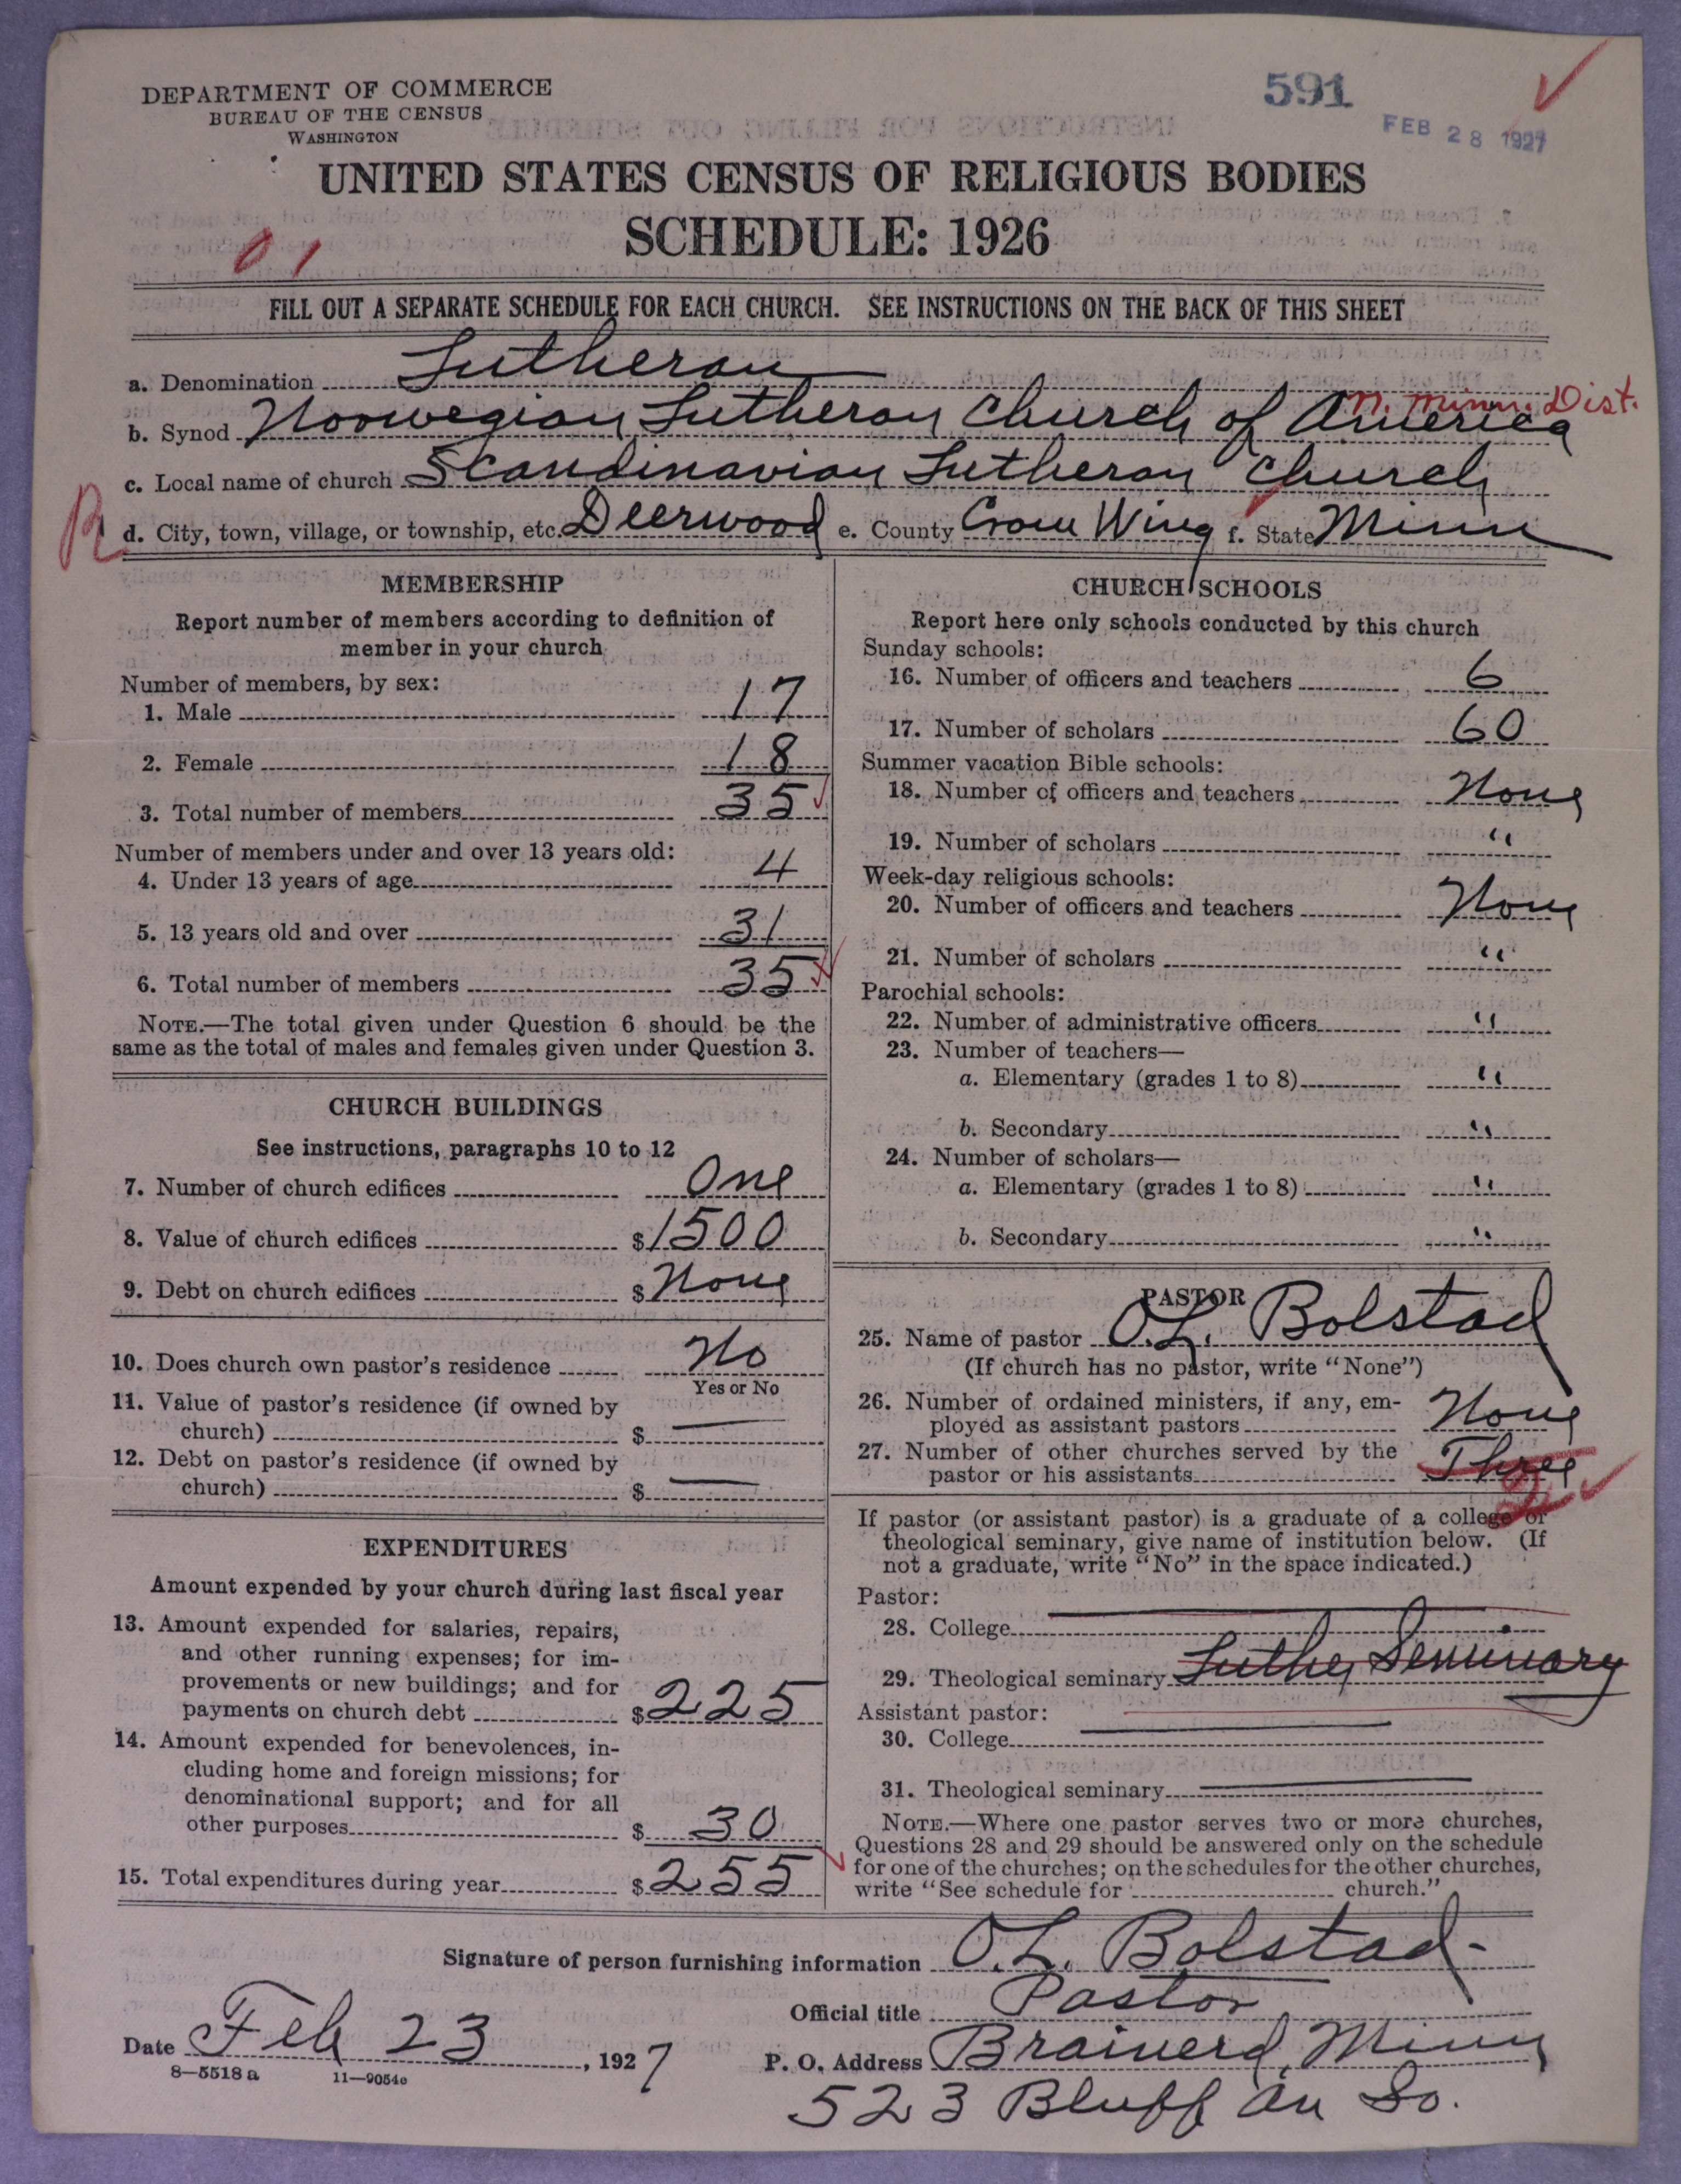 DEPARTMENT OF COMMERCE
BUREAU OF THE CENSUS
WASHINGTON
591
FEB 28 1927
UNITED STATES CENSUS OF RELIGIOUS BODIES
SCHEDULE: 1926
01
FILL OUT A SEPARATE SCHEDULE FOR EACH CHURCH. SEE INSTRUCTIONS ON THE BACK OF THIS SHEET
a. Denomination Lutheran
N. Minn. Dist.
b. Synod Norwegian Lutheran Church of America
c. Local name of church Scandinavian Lutheran Church
R d. City, town, village, or township, etc. Deerwood e. County Crow Wing f. State Minn
MEMBERSHIP
Report number of members according to definition of
member in your church
Number of members, by sex:
1. Male 17
2. Female 18
3. Total number of members 35
Number of members under and over 13 years old:
4. Under 13 years of age 4
5. 13 years old and over 31
6. Total number of members 35
NOTE.—The total given under Question 6 should be the
same as the total of males and females given under Question 3.
CHURCH BUILDINGS
See instructions, paragraphs 10 to 12
7. Number of church edifices One
8. Value of church edifices $1500
9. Debt on church edifices $None
10. Does church own pastor's residence No
Yes or No
11. Value of pastor's residence (if owned by
church) $ —
12. Debt on pastor's residence (if owned by
church) $ —
EXPENDITURES
Amount expended by your church during last fiscal year
13. Amount expended for salaries, repairs,
and other running expenses; for im-
provements or new buildings; and for
payments on church debt $225
14. Amount expended for benevolences, in-
cluding home and foreign missions; for
denominational support; and for all
other purposes $30
15. Total expenditures during year $255
CHURCH SCHOOLS
Report here only schools conducted by this church
Sunday schools:
16. Number of officers and teachers 6
17. Number of scholars 60
Summer vacation Bible schools:
18. Number of officers and teachers None
19. Number of scholars "
Week-day religious schools:
20. Number of officers and teachers None
21. Number of scholars "
Parochial schools:
22. Number of administrative officers "
23. Number of teachers—
a. Elementary (grades 1 to 8) "
b. Secondary "
24. Number of scholars—
a. Elementary (grades 1 to 8) "
b. Secondary "
PASTOR
25. Name of pastor O.L. Bolstad
(If church has no pastor, write "None")
26. Number of ordained ministers, if any, em-
ployed as assistant pastors None
27. Number of other churches served by the
pastor or his assistants Three
If pastor (or assistant pastor) is a graduate of a college or
theological seminary, give name of institution below. (If
not a graduate, write "No" in the space indicated.)
Pastor:
28. College
29. Theological seminary Luther Seminary
Assistant pastor:
30. College
31. Theological seminary
NOTE.—Where one pastor serves two or more churches,
Questions 28 and 29 should be answered only on the schedule
for one of the churches; on the schedules for the other churches,
write "See schedule for church."
Signature of person furnishing information O.L. Bolstad
Official title Pastor
Date Feb 23, 1927
P. O. Address Brainerd, Minn
523 Bluff Av So.
8—5518a 11—9054c